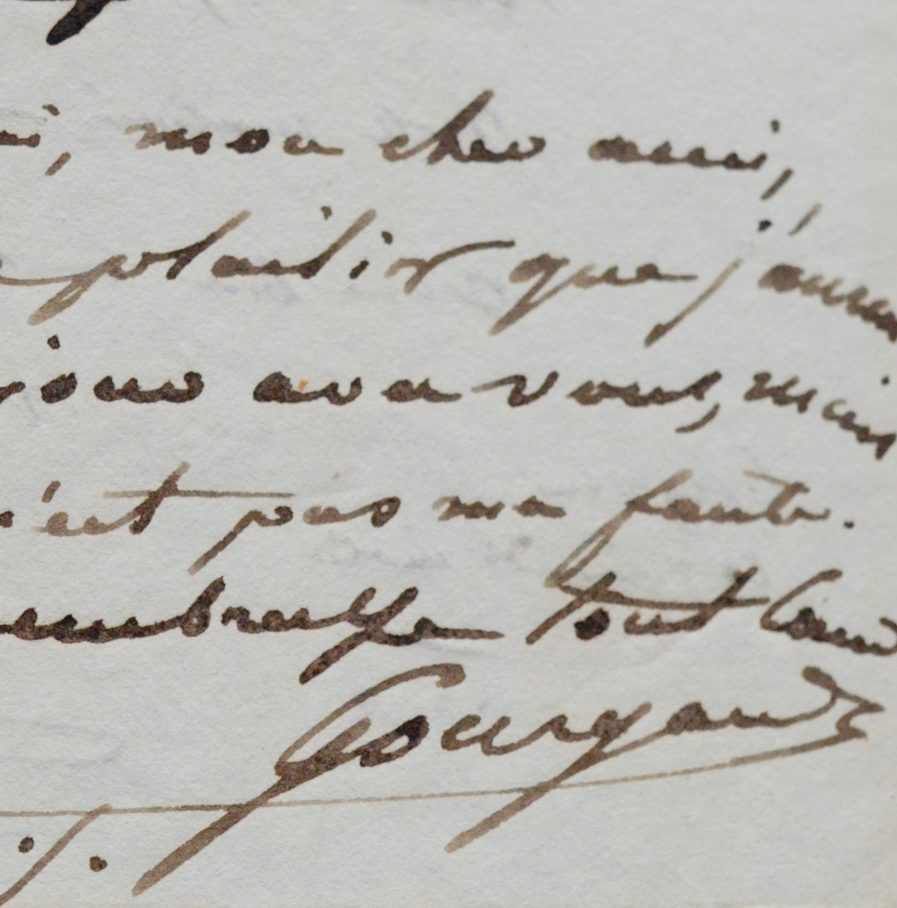 mon cher ami,
plaisir que j'aurai
jour avec vous, mais
n'est pas ma faute.
embrasse tout
Gourgaud